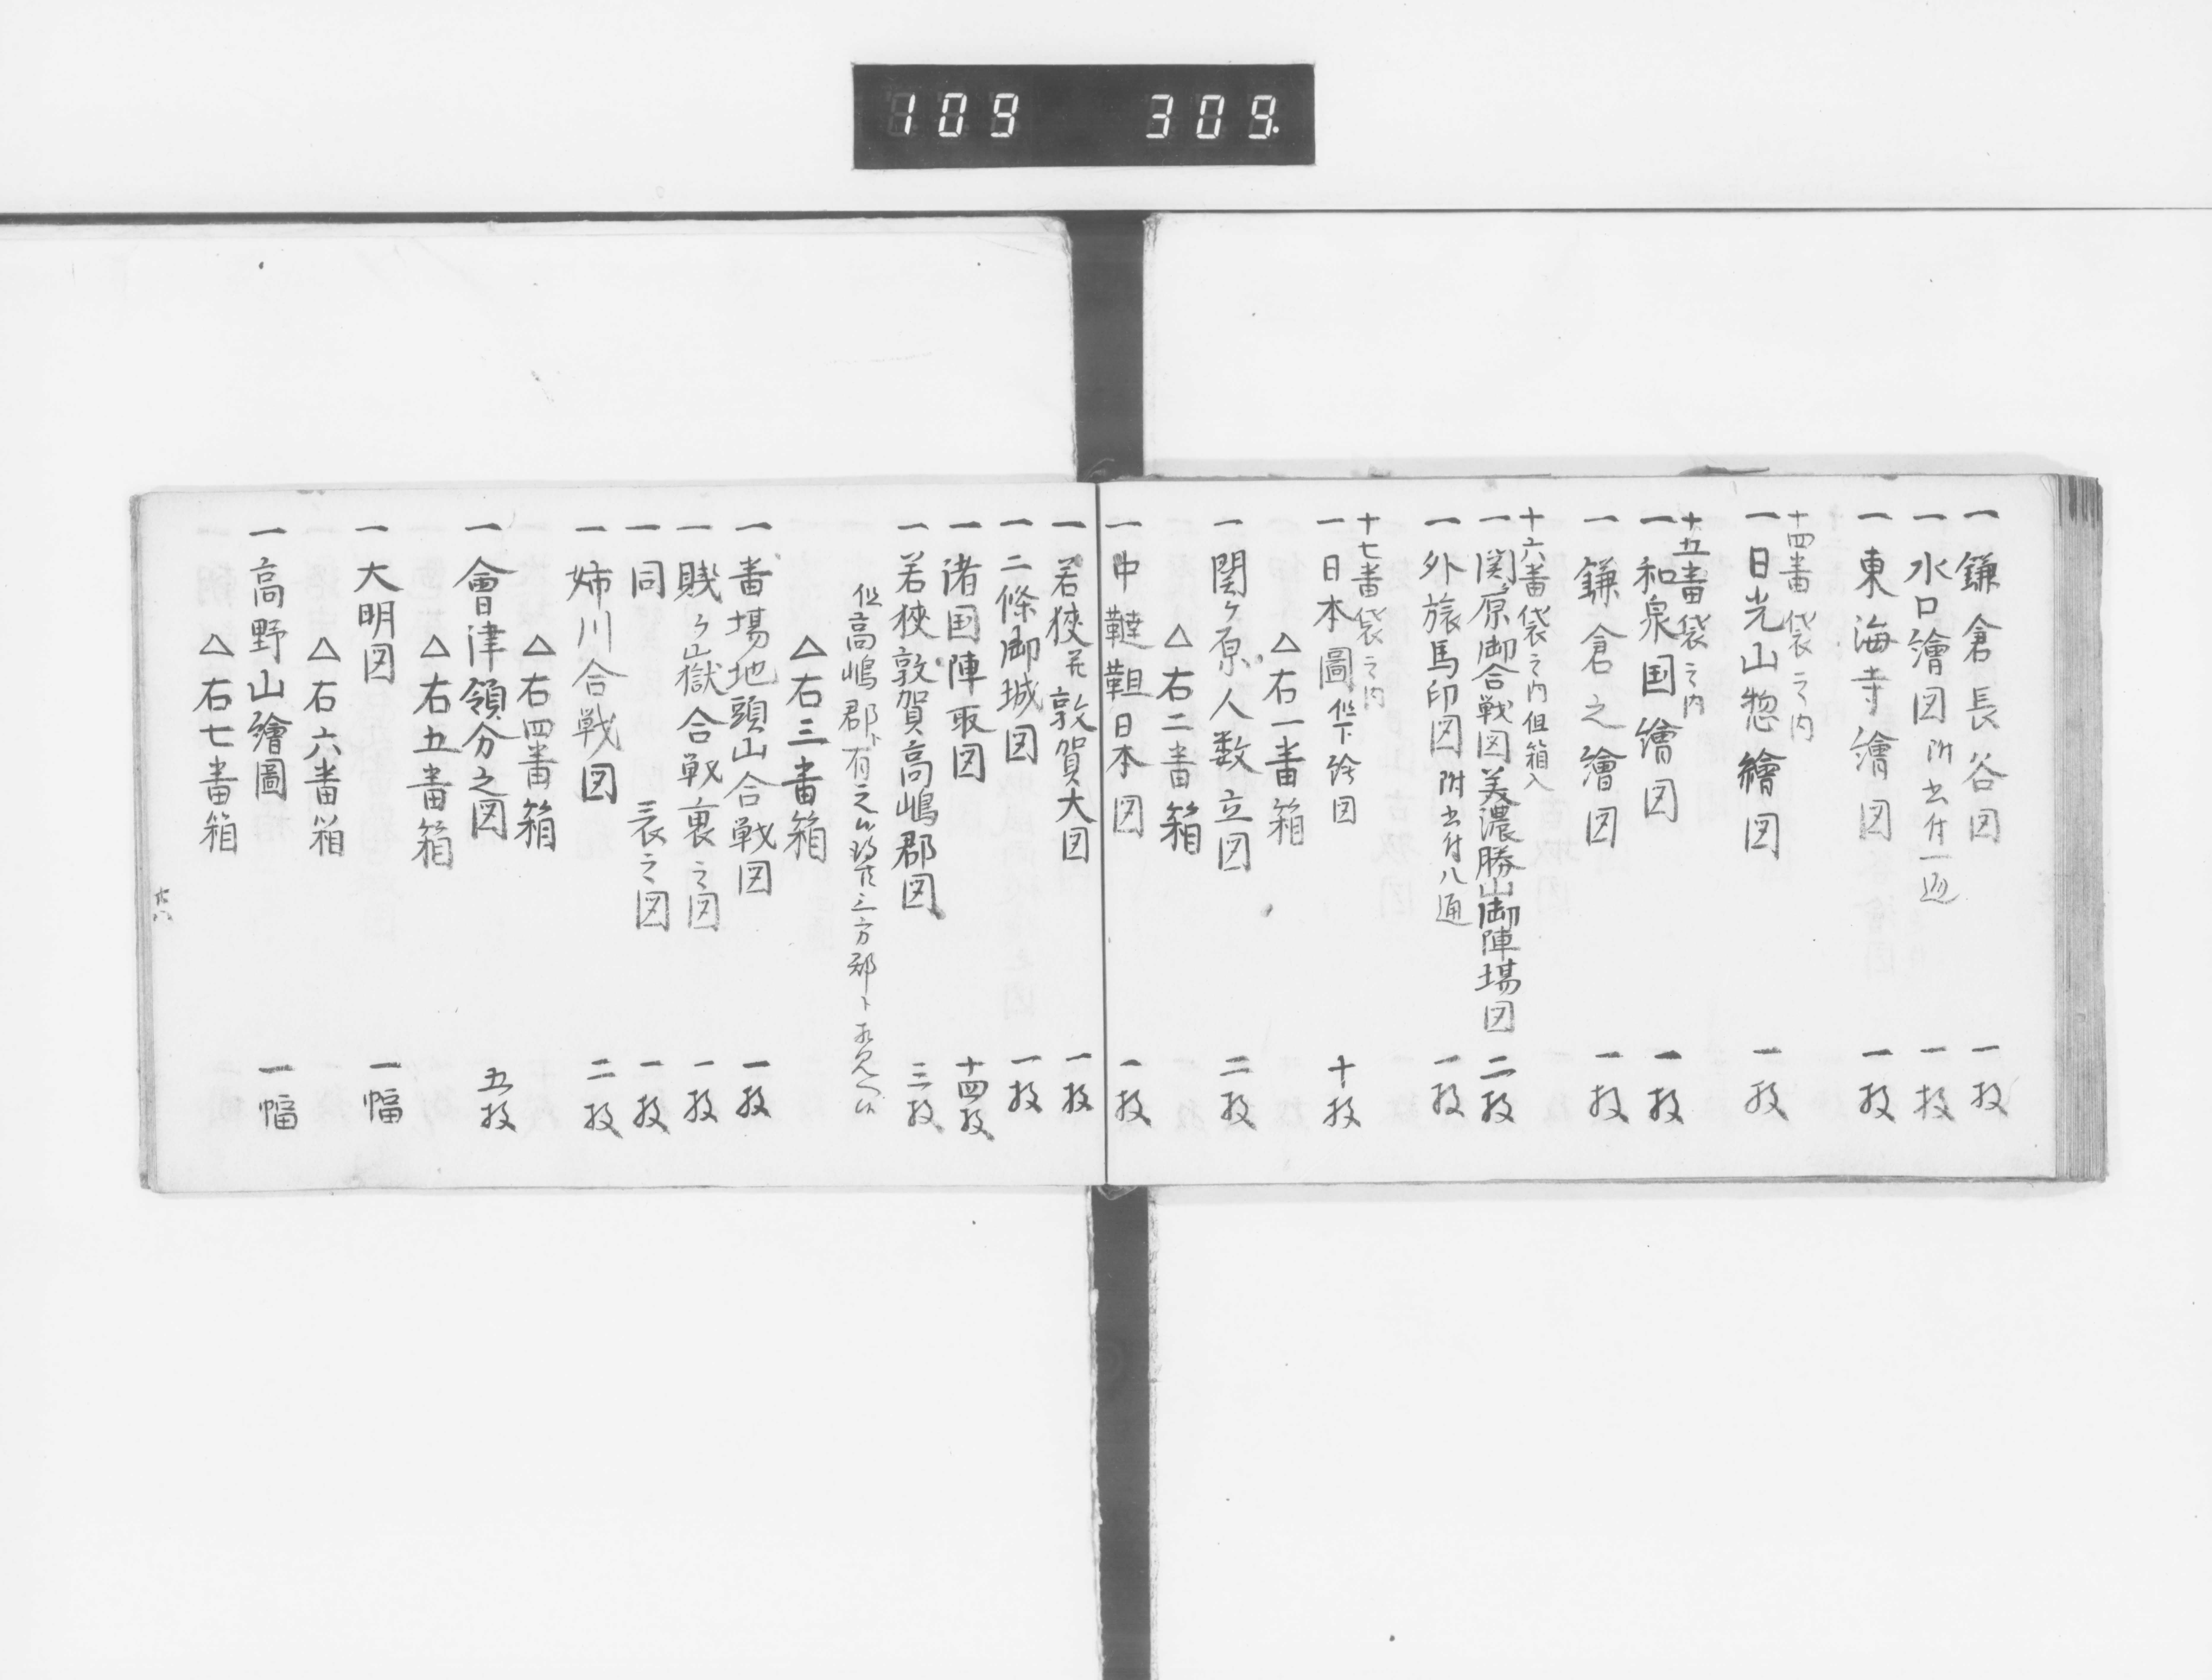 109 309.
一鎌倉長谷図 一枚
一水口繪図 附書付一通 一枚
一東海寺繪図 一枚
十四番袋之内
一日光山惣繪図 一枚
十五番袋之内
一和泉国繪図 一枚
一鎌倉之繪図 一枚
十六番袋之内但箱入
一関ヶ原御合戦図美濃勝山御陣場図 二枚
一外旅馬印図 附書付八通 一枚
十七番袋之内
一日本圖 但下絵図 十枚
△右一番箱
一関ヶ原人数立図 二枚
△右二番箱
一中韃靼日本図 一枚
一若狹并敦賀大図 一枚
一二條御城図 一枚
一諸国陣取図 十四枚
一若狹敦賀高嶋郡図 三枚
但高嶋郡ト有之候得共三方郡ト相見へ候
△右三番箱
一番場地頭山合戦図 一枚
一賤ヶ嶽合戦裏之図 一枚
一同 表之図 一枚
一姉川合戦図 二枚
△右四番箱
一會津領分之図 五枚
△右五番箱
一大明図 一幅
△右六番箱
一高野山繪圖 一幅
△右七番箱